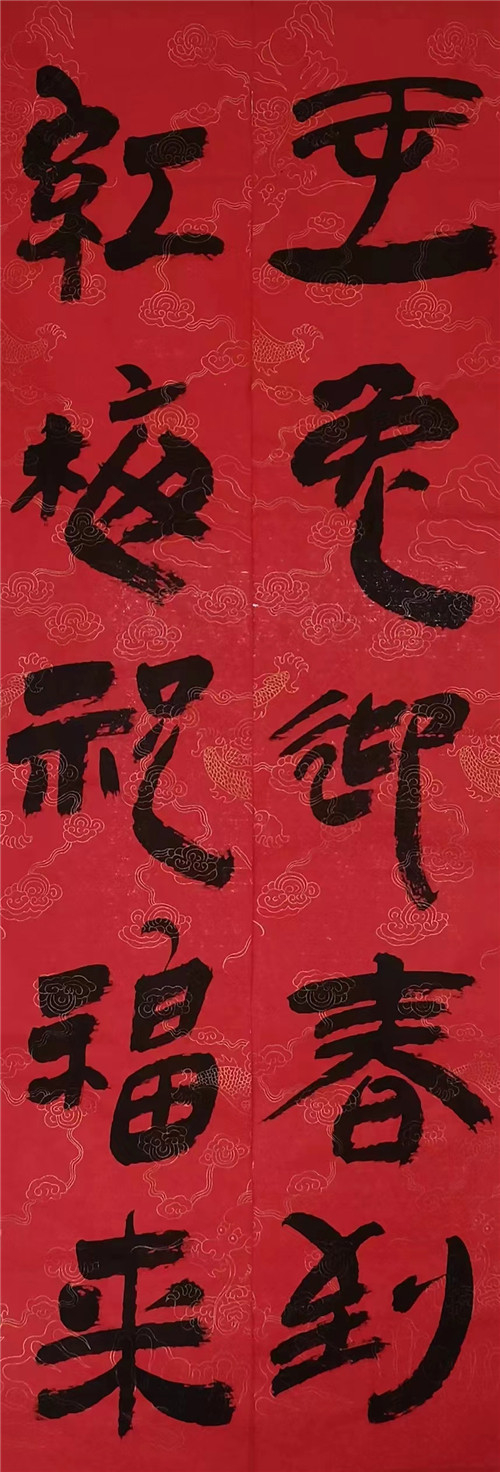 玉兔迎春到
紅梅祝福来